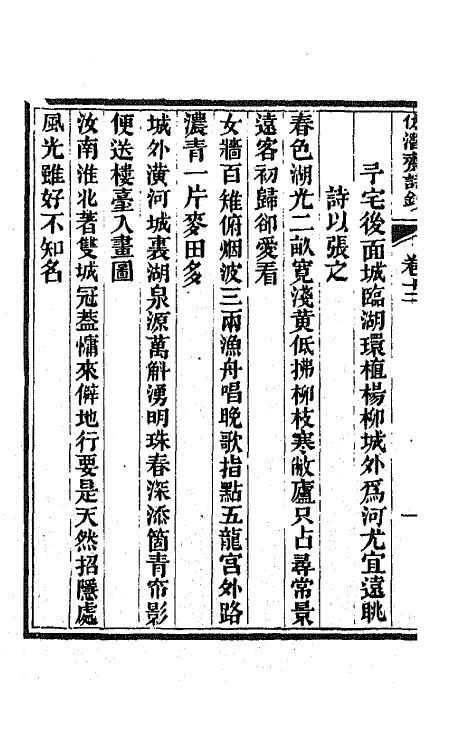 予宅後面城臨湖環植楊柳城外爲河尤宜遠眺
詩以張之
春色湖光二畝寬淺黄低拂柳枝寒敝廬只占尋常景
遠客初歸卻愛看
女牆百雉俯烟波三兩漁舟唱晚歌指點五龍宫外路
濃青一片麥田多
城外潢河城裏湖泉源萬斛湧明珠春深添箇青帘影
便送樓臺入畫圖
汝南淮北著雙城冠蓋慵來僻地行要是天然招隱處
風光雖好不知名